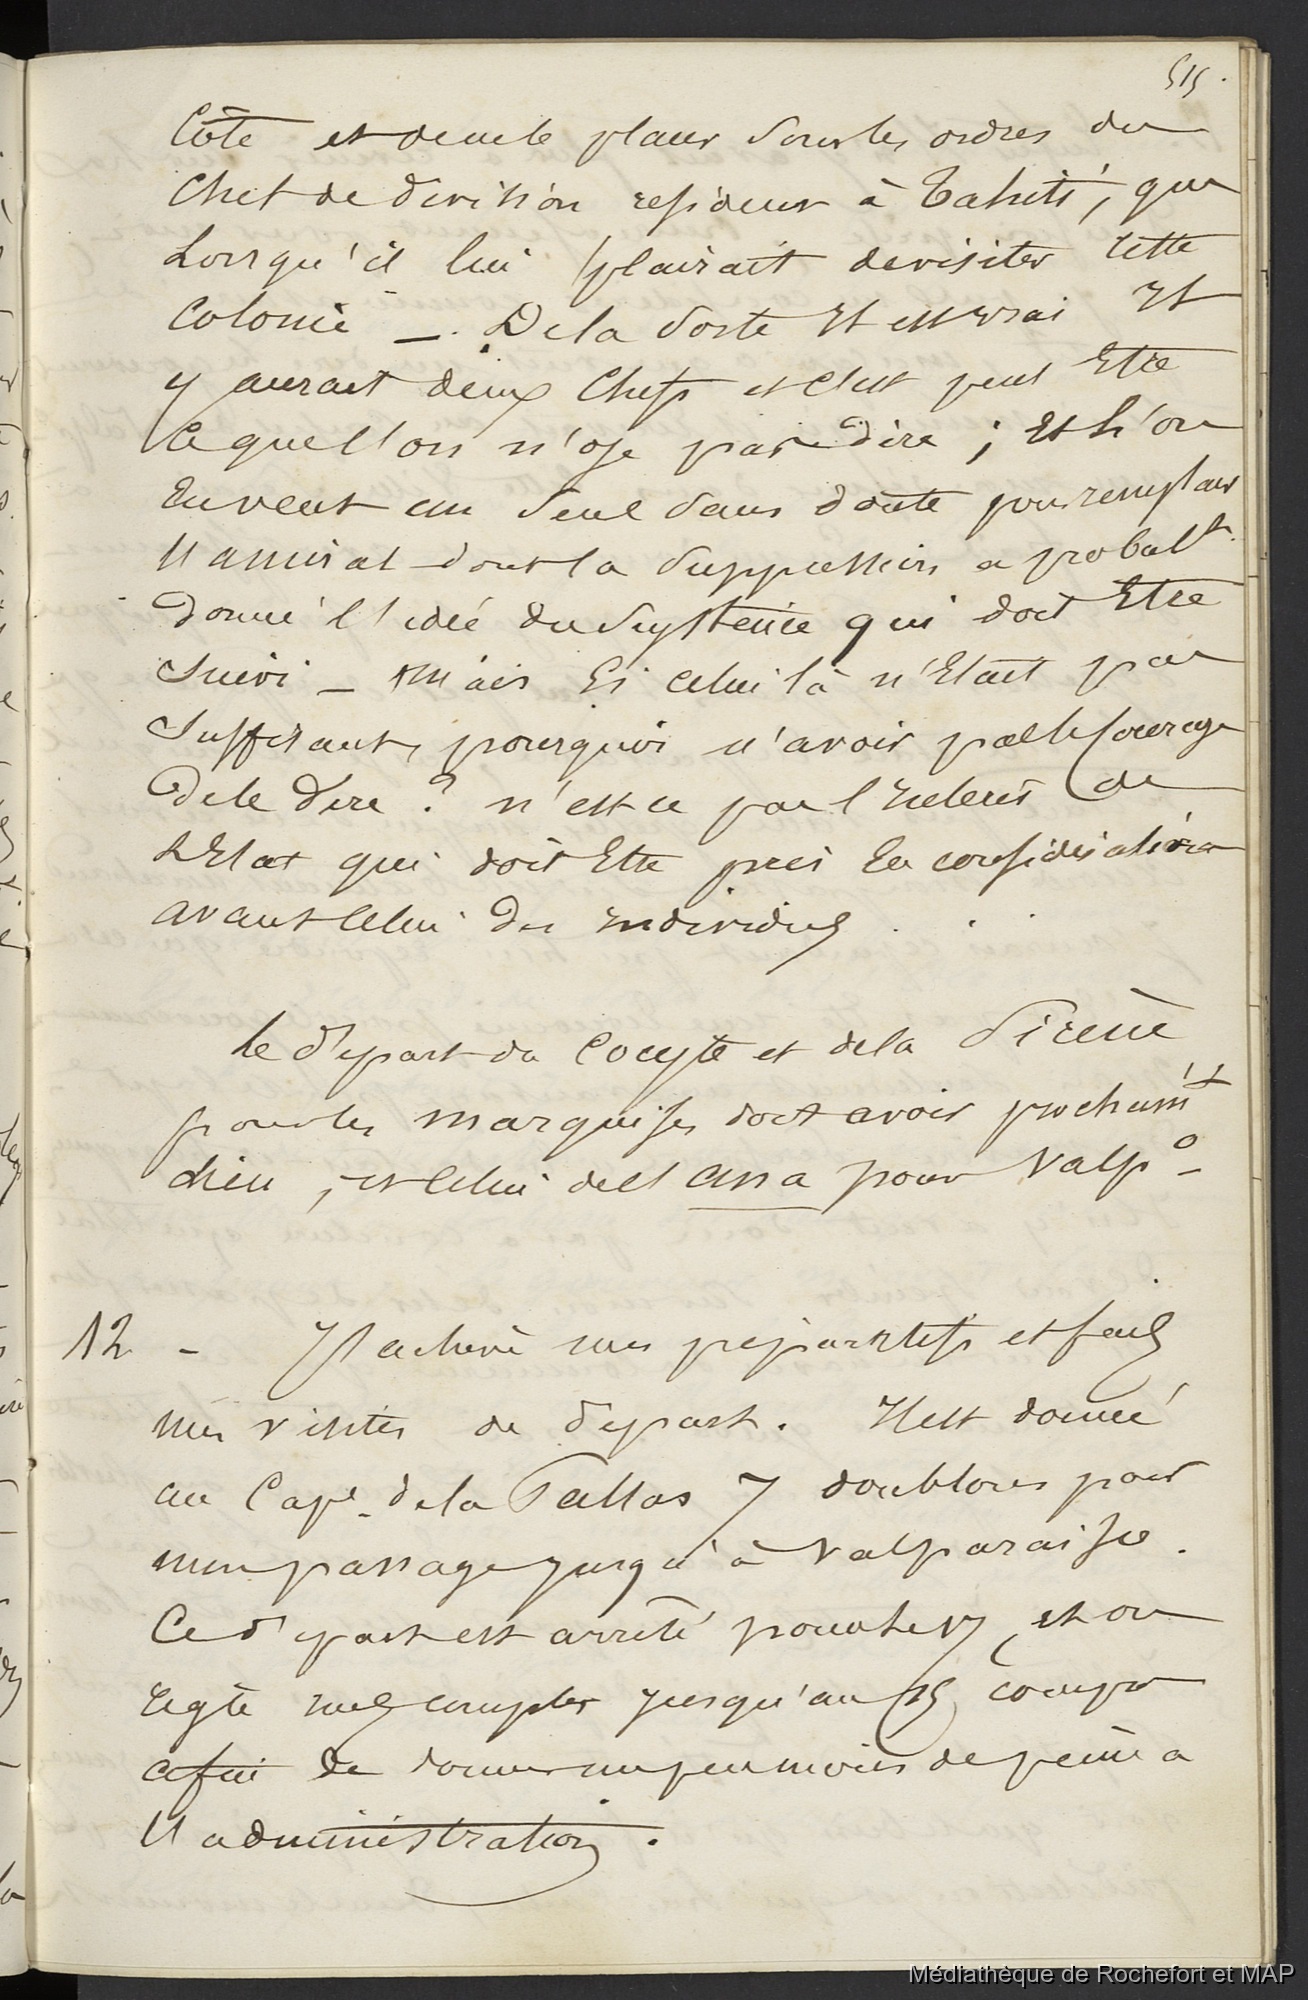 515.
Côte et de ne le placer sous les ordres du
Chef de division résident à Tahiti, que
Lorsqu'il lui plairait de visiter cette
Colonie _. De la sorte Il est vrai Il
y aurait deux Chefs et c'est peut Etre
Ce que l'on n'ose pas dire ; Et si l'on
En veut un seul sans doute pour remplacer
l'amiral dont la suppression a probabl.t
donné l'idée du système qui doit Etre
suivi _ Mais Si celui là n'Etait pas
suffisant, pourquoi n'avoir pas le courage
de le dire ? n'est ce pas l'Interêt de
L'Etat qui doit Etre pris En considération
avant Celui des Individus . . .
Le départ du Cocyte et de la Sirène
pour les Marquises doit avoir prochainm.t
Lieu , et Celui de l'Anna pour Valp.o
12 _ J'achève mes préparatifs et fais
mes visites de départ. Il est donné
au Cap.e de la Pallas 7 doublons pour
mon passage jusqu'à Valparaiso.
Ce départ est arrêté pour le 17, et on
règle mes comptes jusqu'au 15 compris
afin de donner un peu moins de peine a
l'administration.
Médiathèque de Rochefort et MAP